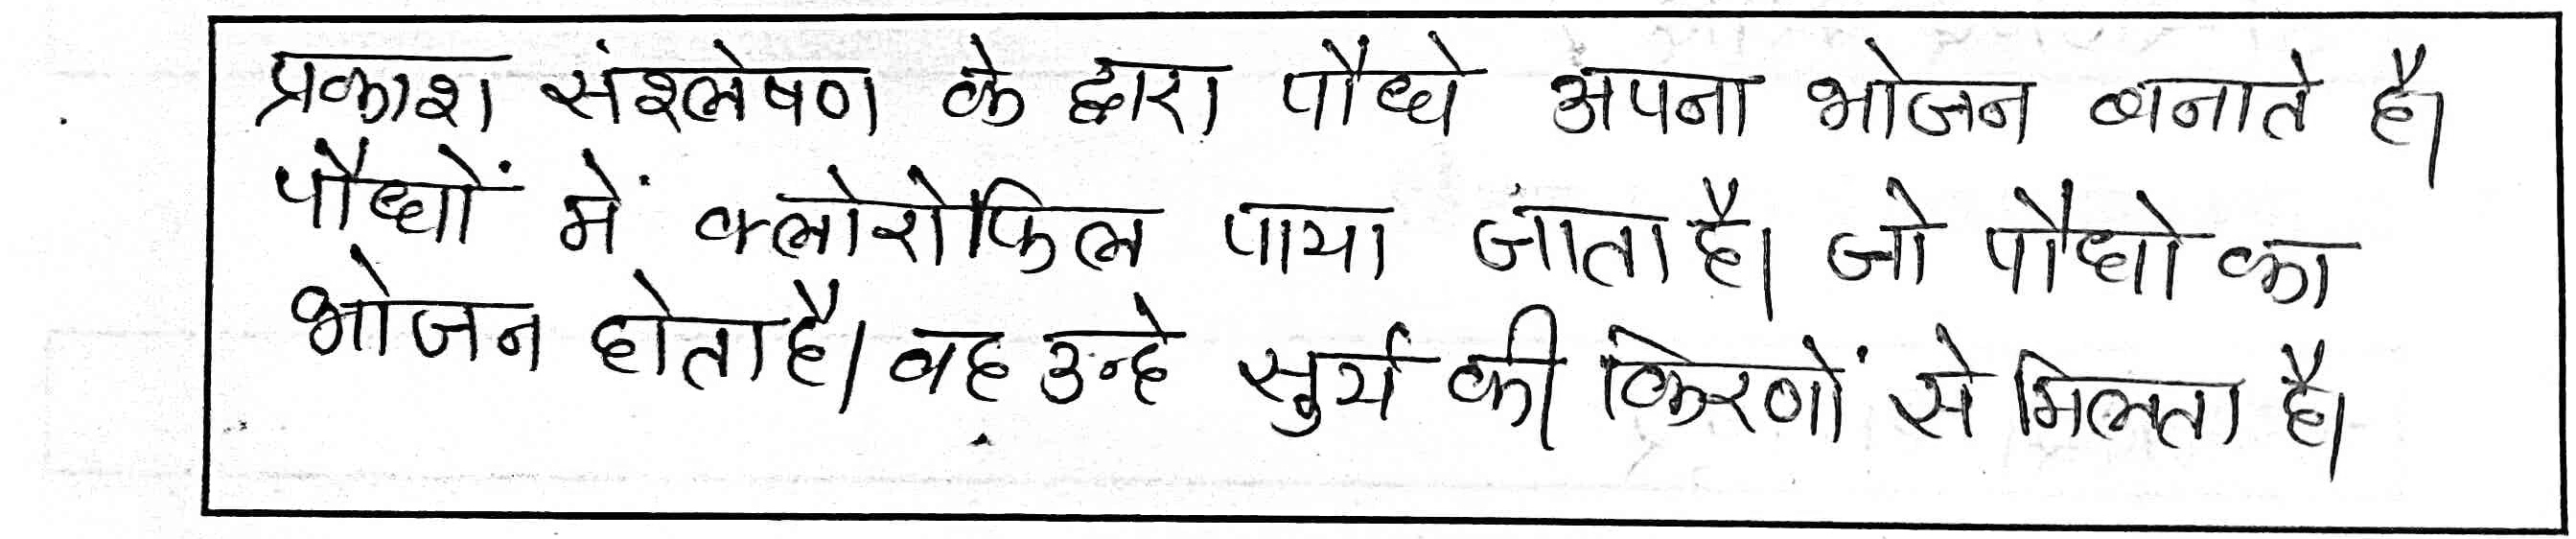 प्रकाश संश्लेषण के द्वारा पौधे अपना भोजन बनाते है।
पौधों में क्लोरोफिल पाया जाता है। जो पौधो का
भोजन होता है। वह उन्हे सुर्य की किरणों से मिलता है।